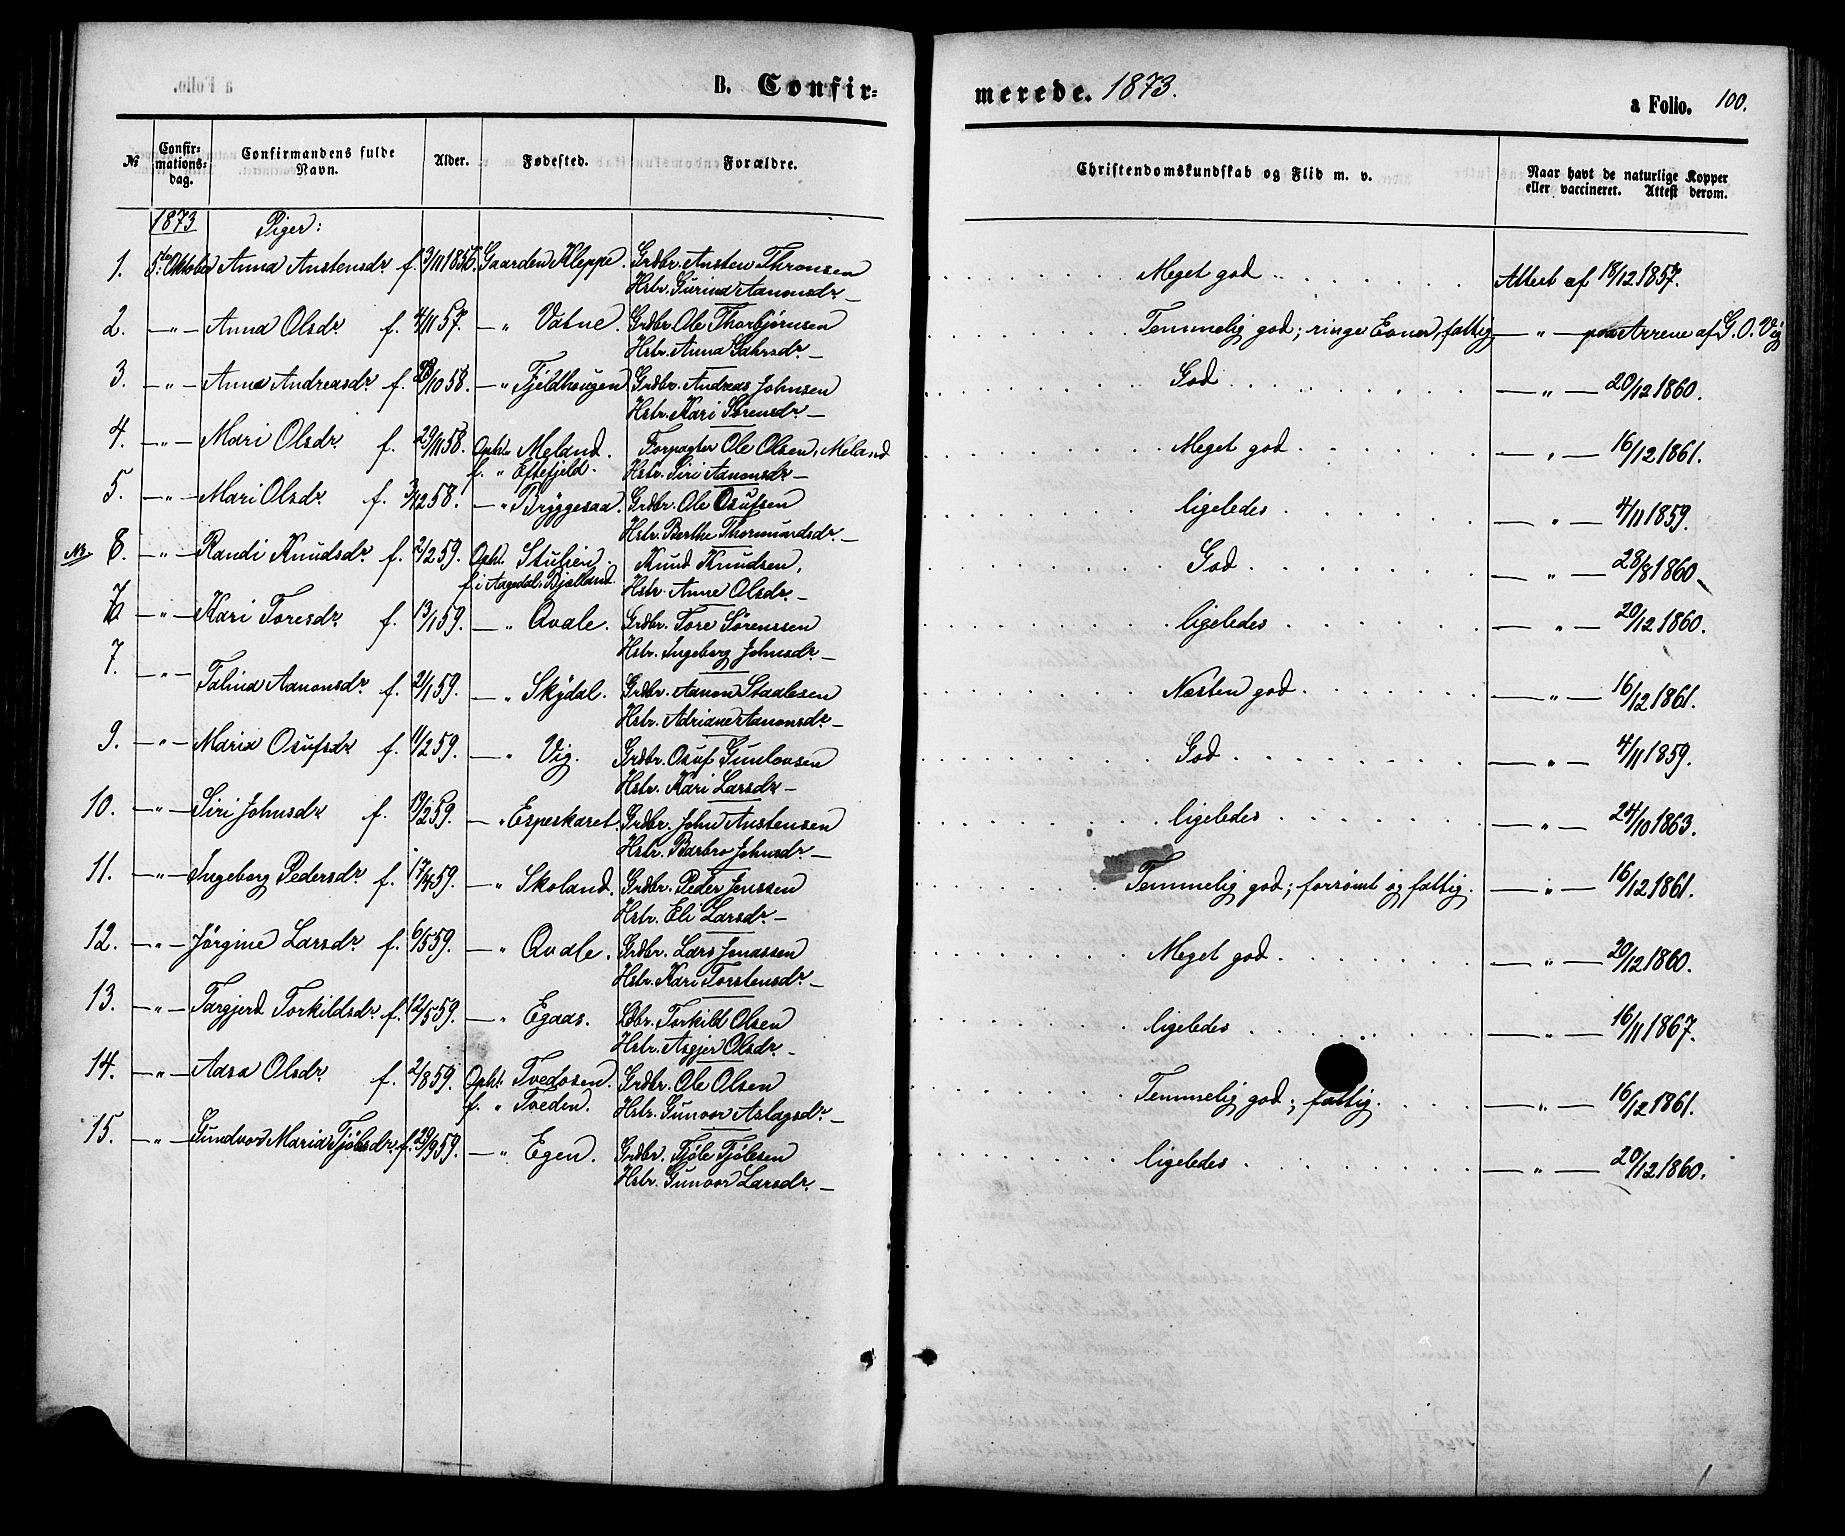 B. Confirmerede. 1873.
a Folio. 100.
№ Confirmationsdag. Confirmandens fulde Navn. Alder. Fødested. Forældre. Christendomskundskab og Flid m. v. Naar havt de naturlige Kopper eller vaccineret. Attest derom.
1873 Piger:
1. 5te Oktober Anna Austensdr. f. 3/11 1856. Gaarden Kleppe. Grdbr. Austen Thronsen Meget god Attest af 18/12 1857.
Hstr. Gurine Aanonsdr. —
2. —"— Anna Olsdr f. 4/11 57. —" Vatne. Grdbr. Ole Thorbjørnsen Temmelig god; ringe Evner, fattig —"— Arrene af G. O. Vig
Hstr. Anna —
3. —"— Anna Andreasdr f. 28/10 58. —" Fjeldhougen Grdbr. Andreas Johnsen God —"— 20/12 1860.
Hstr. Kari Sørensdr. —
4. —"— Mari Olsdr f. 29/11 58. Opht. Meland. Forpagter Ole Olsen, Meland Meget god —"— 16/12 1861.
f. " Eftefjeld. Hstr. Siri Aanonsdr —
5. —"— Mari Olsdr. f. 3/12 58. —" Bryggesaa. Grdbr. Ole Osufsen ligeledes —"— 4/11 1859.
Hstr. Berthe Thormundsdr. —
NB. 8. —"— Randi Knudsdr. f. 2/2 59. Opht. Knud Knudsen, God —"— 28/8 1860.
f. i Aagedal, Bjelland. Hstr. Anne Olsdr. —
7. —"— Kari Toresdr. f. 13/1 59. —" Qvale. Grdbr. Tore Sørenssen ligeledes —"— 20/12 1860.
Hstr. Ingeborg Johnsdr. —
7. —"— Talina Aanonsdr. f. 21/1 59. —" Skydal. Grdbr. Aanon Staalesen Næsten god —"— 16/12 1861.
Hstr. Adriane Aanonsdr. —
9. —"— Maria Osufsdr f. 11/2 59. —" Vig. Grdbr. Osuf Gunlovsen God —"— 4/11 1859.
Hstr. Kari Larsdr —
10. —"— Siri Johnsdr f. 19/2 59. —" Espeskaret. Grdbr. John Austensen ligeledes —"— 24/10 1863.
Hstr. Barbro Johnsdr. —
11. —"— Ingeborg Pedersdr. f. 17/4 59. —" Skoland. Grdbr. Peder Jenssen Temmelig god; forsømt og fattig. —"— 16/12 1861.
Hstr. Eli Larsdr. —
12. —"— Jørgine Larsdr. f. 6/5 59. —" Qvale. Grdbr. Lars Jonassen Meget god —"— 20/12 1860.
Hstr. Kari Torstensdr. —
13. —"— Targjerd Torkildsdr. f. 12/5 59. —" Egaas. Torkild Olsen ligeledes —"— 16/11 1867.
Hstr. Asgjer Olsdr. —
14. —"— Adsa Olsdr. f. 2/8 59. Opht. Tvedosen. Grdbr. Ole Olsen Temmelig god; fattig. —"— 16/12 1861.
f. " Tveden. Hstr. Gunvor Aslagsdr. —
15. —"— Gundvor Maria Tjølesdr. f. 29/9 59. —" Egen. Grdbr. Tjøle Tjølesen ligeledes —"— 20/12 1860.
Hstr. Gunvor Larsdr. —